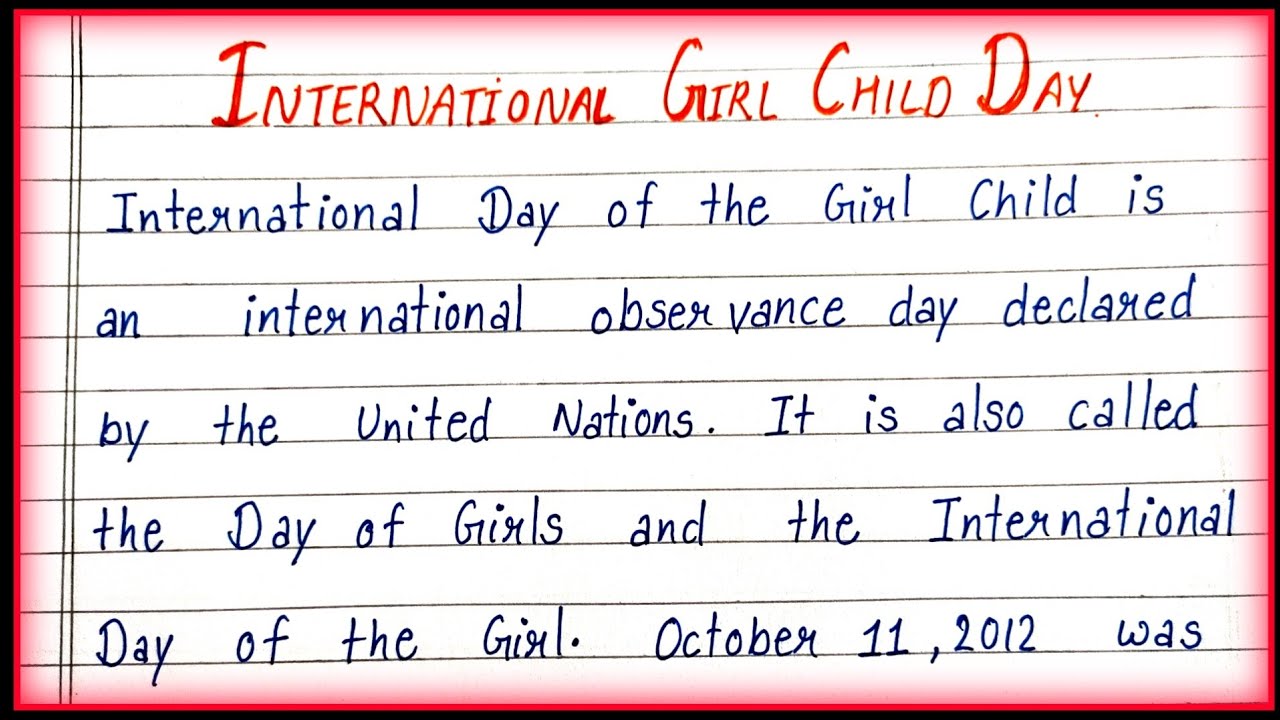 INTERNATIONAL GIRL CHILD DAY.
International Day of the Girl Child is
an international observance day declared
by the United Nations. It is also called
the Day of Girls and the International
Day of the Girl. October 11, 2012 was